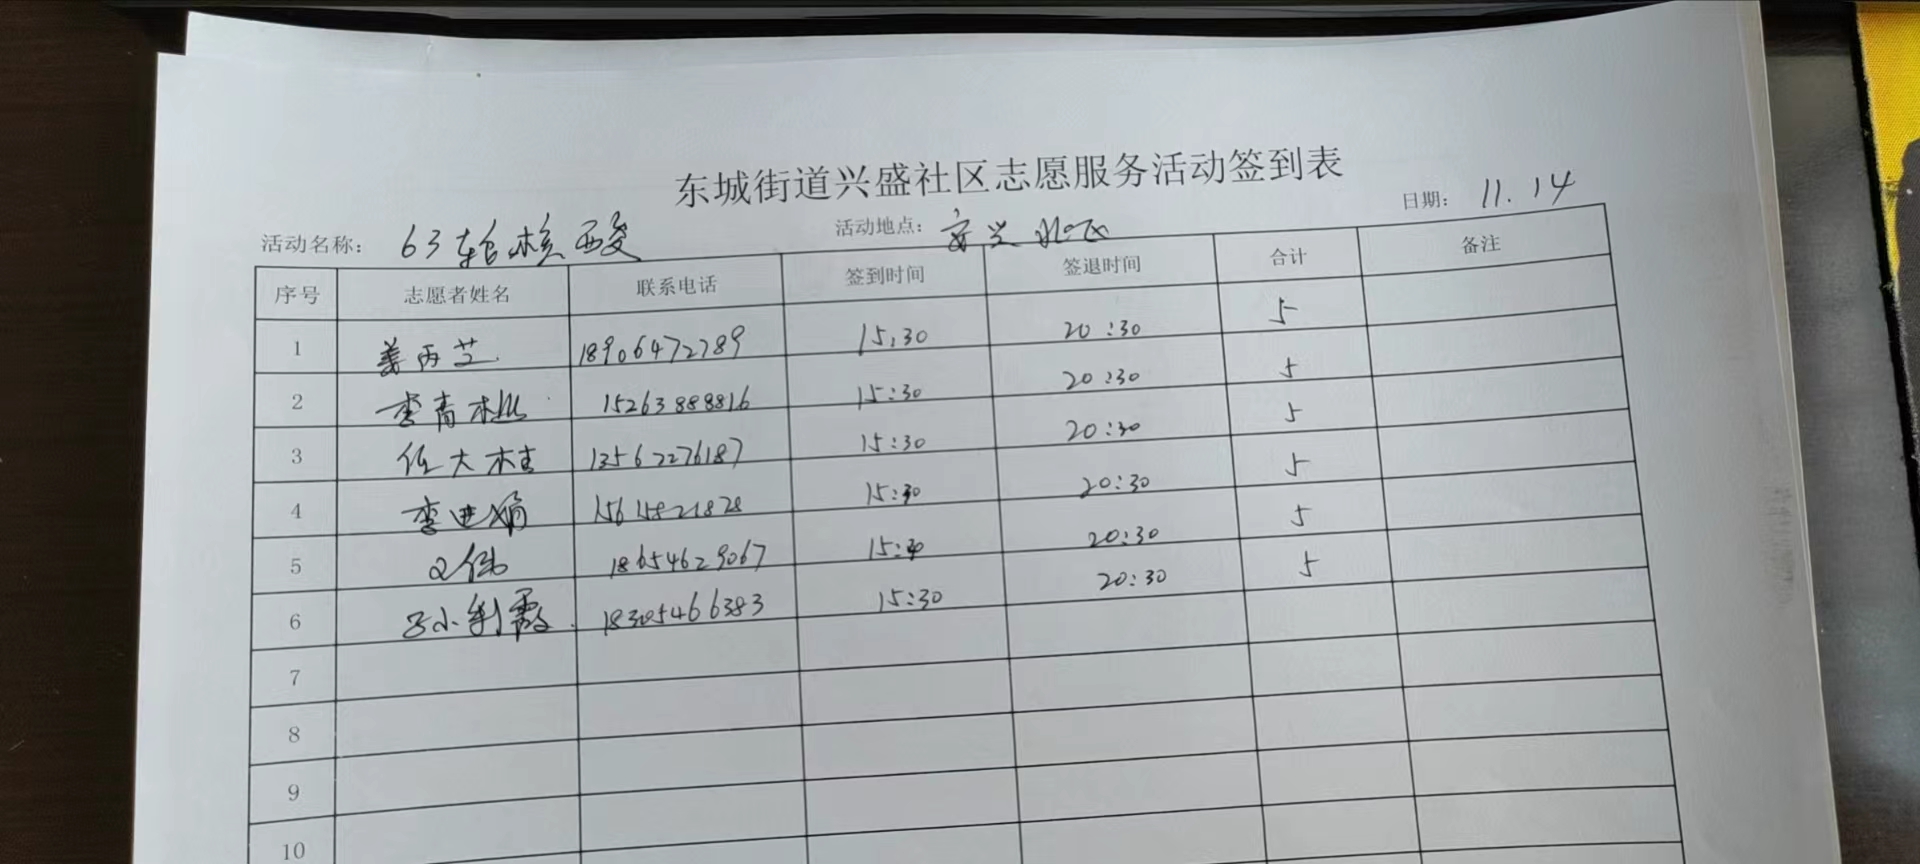 东城街道兴盛社区志愿服务活动签到表
活动名称： 63轮核酸 活动地点：安兴北区 日期： 11.14
序号 志愿者姓名 联系电话 签到时间 签退时间 合计 备注
1 姜丙芝 18906472789 15:30 20:30 5
2 李青 15263888816 15:30 20:30 5
3 任大桂 13562276187 15:30 20:30 5
4 李进娟 15615821828 15:30 20:30 5
5 18654629067 15:30 20:30 5
6 18305466383 15:30 20:30 5
7
8
9
10